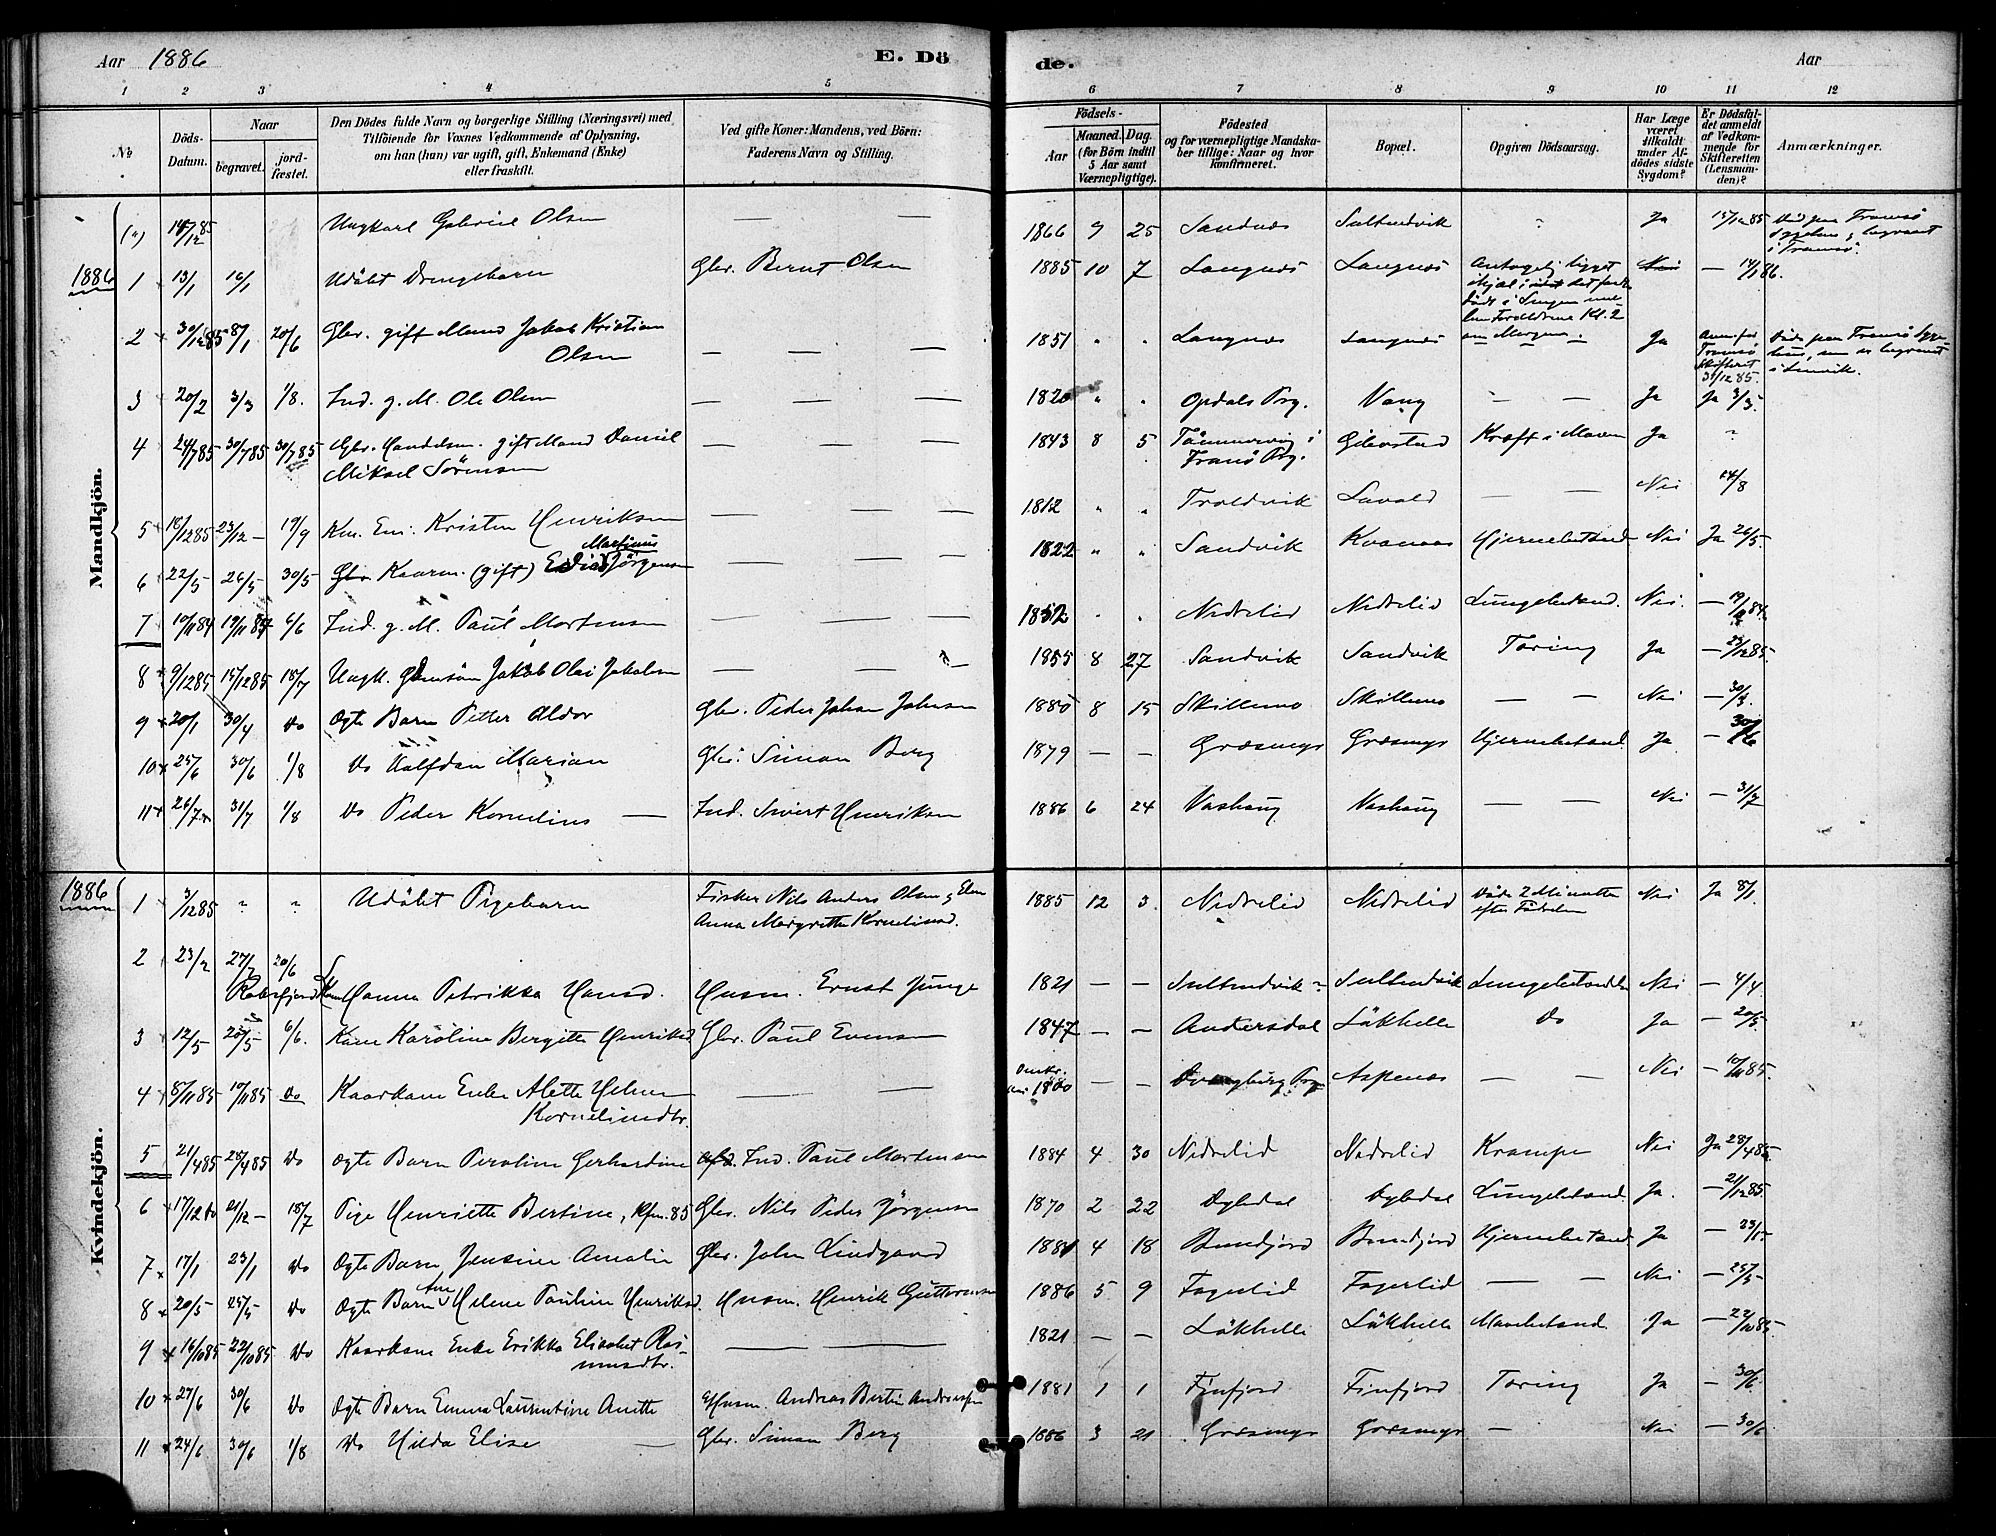 Aar 1886 E. Döde. Aar
1 2 3 4 5 6 7 8 9 10 11 12
№ Döds-Datum. Naar begravet. jordfæstet. Den Dödes fulde Navn og borgerlige Stilling (Næringsvei) med Tilföiende for Voxnes Vedkommende af Oplysning, om han (hun) var ugift, gift, Enkemand (Enke) eller fraskilt. Ved gifte Koner: Mandens, ved Börn: Faderens Navn og Stilling. Födsels- Aar Maaned. Dag. (for Börn indtil 5 Aar samt Værnepligtige). Födested og for værnepligtige Mandskaber tillige: Naar og hvor konfirmeret. Bopæl. Opgiven Dödsaarsag. Har Læge været tilkaldt under Afdödes sidste Sygdom? Er Dödsfaldet anmeldt af Vedkommende for Skifteretten (Lensmanden)? Anmærkninger.
Mandkjön.
Ungkarl Gabriel Olsen — — 1866 9 25 Sandnæs Sultindvik Ja 15/12 85
1886 1 13/1 16/1 Udöbt Drengebarn Gbr. Bernt Olsen 1885 10 7 Langnæs Langnæs Nei — 14/1 86.
2 30/12 85 8/1 20/6 Gbr. gift Mand Jakob Kristian Olsen — — — 1851 " " Langnæs Langnæs — — Ja Tromsö Skifteret 31/12 85. Död paa Tromsö Sygehus, men er begravet i Lenvik.
3 20/2 3/3 1/8. Ind. g. M. Ole Olsen — — — 1820 " " Opdals Prg. Vang — — Ja Ja 3/3.
4 24/7 85 30/7 85 30/7 85 Gbr. Handelsm. gift Mand Daniel Mikael Sörensen — — — 1843 8 5 Tömmervig i Tranö Prg. Gibostad Kræft i Maven Ja "
5 18/12 85 23/12 — 19/9 Kristen Henriksen — — — 1812 " " Troldvik Lavold — — Nei 24/8
6 22/5 26/5 30/5 Gbr. Kaarm. (gift) Martinus Jörgensen — — — 1822 " " Sandvik Kvanaas Hjernebetænd Nei Ja 26/5.
7 10/11 84 19/11 84 6/6 Ind. g. M. Paul Mortensen — — — 1852 . . Nedrelid Nedrelid Lungebetænd. Nei. — 19/
8 9/12 85 15/12 85 18/7 Ungk. Jakob Olai Jakobsen — — — 1855 8 27 Sandvik Sandvik Tæring Ja — 85.
9 20/1 30/4 Do Ægte Barn Petter Aldor Gbr. Peder Johan Johnsen 1880 8 15 Skillemo Skillemo — — Nei — 30/4.
10 25/6 30/6 1/8 Do Halfdan Marian Gbr. Simon Berg 1879 — — Græsmyr Græsmyr Hjernebetænd Ja — 30/6
11 26/7 31/7 1/8 Do Peder Kornelius — Ind. Sivert Henriksen 1886 6 24 Vashaug Vashaug — — Nei — 31/7
Kvindekjön.
1886 1 3/12 85 " " Udöbt Pigebarn Fisker Nils Anders Olsen og Anna Margrethe Kornelius d. 1885 12 3 Nedrelid Nedrelid Döde 2 Minutter efter Födselen Nei Ja 8/1.
2 23/2 27/2 20/6 Hanna Petrikka Hansd. Husm. Ernst Junge 1821 — — Sultindvik Sultindvik Lungebetændelse Nei — 4/4
3 12/5 20/5 6/6. Kone Karoline Bergitte Henriksd Gbr. Paul Evensen 1847 — — Andersdal Låkhelle Do Ja — 20/5
4 8/11 85 10/11 85 Do Kaarkone Enke Alette Helene Kornelimdtr. — — 1800 — — Aspenes — — Nei — 10/11 85.
5 21/4 85 28/4 85 Do Ægte Barn Peroline Gerhardine Ind. Paul Mortensen 1884 4 30 Nedrelid Nedrelid Krampe Nei Ja 28/4 85.
6 17/12 Do 21/12 — 18/7 Pige Henriette Bertine, Kfm. 85 Gbr. Nils Peder Jörgensen 1870 2 22 Dybdal Dybdal Lungebetænd. Ja. — 21/12 85.
7 17/1 23/1 Do Ægte Barn Jensine Amalie Gbr. John Lindgaard 1881 4 18 Bundfjord Bundfjord Hjernebetænd. Ja — 23/1
8 20/5 25/5 Do Ægte Barn Ane Helene Pauline Henriksd. Husm. Henrik Guttormsen 1886 5 9 Fagerlid Fagerlid — — Nei — 25/5
9 16/10 85 22/10 85 Do Kaarkone Enke Erikka Elisabet Rasmusdtr. — — 1821 — — Låkhelle Låkhelle Mavebetænd. Ja — 22/10 85.
10 27/6 30/6 Do Ægte Barn Emma Laurentine Anette Husm. Andreas Bertin Andreassen 1881 1 1 Finfjord Finfjord Tæring Ja — 30/6.
11 24/6 30/6 1/8 Do Hilda Elise — Gbr. Simon Berg 1886 3 21 Græsmyr Græsmyr — Nei — 30/6